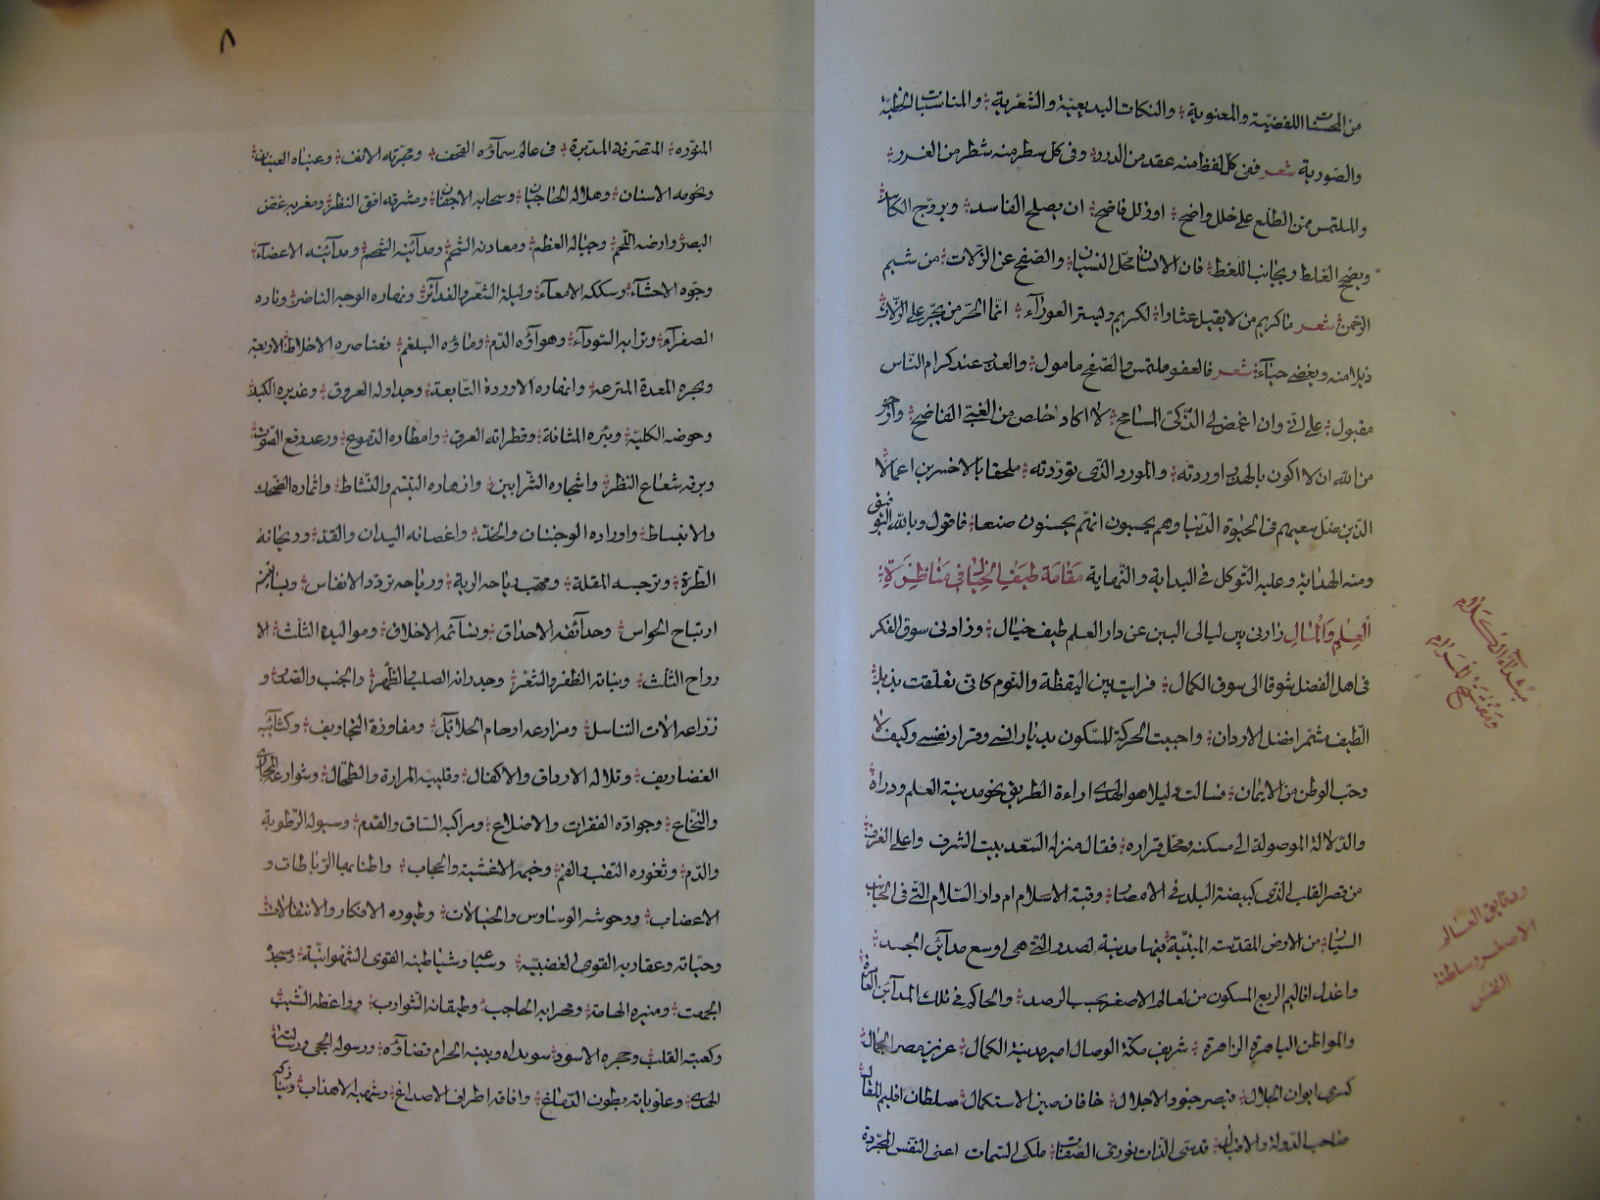 من المحسنات اللفظية والمعنوية والنكات البديعية والشعرية والمناسبات الخطبية
والصورية شعر ففي كل لفظ منه عقد من الدرر وفي كل سطر منه شطر من الغرر
والملتمس ممن اطلع على خلل واضح او زلل فاضح ان يصلح الفاسد ويروج الكاسد
ويصحح الغلط ويجانب اللغط فان الانسان محل النسيان والصفح عن الزلات من شيم
الرحمن شعر ما كريم من لا يقيل عثارا لكريم ويستر العوراء انما الحر من يجر على الزلات
ذيلا منه ويغضي حياء شعر فالعفو ملتمس والصفح مامول والعذر عند كرام الناس
مقبول على اني وان اغمض لي الذكي المسامح لا اكاد اخلص من الغبي الفاضح وارجو
من الله ان لا اكون بالهذر اوردته والمورد الذي توردته ملحقا بالاخسرين اعمالا
الذين ضل سعيهم في الحيوة الدنيا وهم يحسبون انهم يحسنون صنعا فاقول وبالله التوفيق
ومنه الهداية وعليه التوكل في البداية والنهاية مقامة طيف الخيال في مناظرة
العلم والمال زارني بين ليالي البين عن دار العلم طيف خيال وزادني سوق الفكر
في اهل الفضل شوقا الى سوق الكمال فرايت بين اليقظة والنوم كاني تعلقت بذيل
الطيف مشمرا فضل الاردان واجبت الحركة للسكون بديار انسي وقرار نفسي وكيف لا
وحب الوطن من الايمان فسالت دليلا هو الهدى اراءة الطريق نحو مدينة العلم وداره
والدلالة الموصولة الى مسكنه ومحل قراره فقال منزله السعد بيت الشرف واعلى الغرف
من قصر القلب الذي كبيضة البلد في الامصار وقبة الاسلام ام دار السلام التي في الجانب
اليسار من الارض المقدسة المبنية فيها مدينة لصدر التي هي اوسع مدائن الجسد
واعدل اقاليم الربع المسكون من العالم الاصغر بحسب الرصد والحاكم في تلك المدائن العامرة
والمواطن الباهرة الزاهرة شريف مكة الوصال امير مدينة الكمال عزيز مصر الجمال
كسرى ايوان الجلال قيصر جنود الاجلال خاقان صين الاستكمال سلطان اقليم المقال
صاحب الدولة والاقبال قدسي الذات نوري الصفات ملكي السمات اعني النفس المجردة
مبتداء الكلام
ودقايق العالم
الاصغر وسلطنة
النفس
٨
المنورة المتصرفة المدبرة في عالم سماؤه القحف ومجرته الانف وعيناه العينان
ونجومه الاسنان وهلاله الحاجبان وسحابه الاجفان ومشرقه افق النظر ومغربه غض
البصر وارضه اللحم وجباله العظم ومعادنه الشحم ومدائنه الاعضاء
وجوه الاحشاء وسككه الامعاء وليله الشعر والغدائر ونهاره الوجه الناضر وناره
الصفراء وترابه السوداء وهواؤه الدم وماؤه البلغم فعناصره الاخلاط الاربعة
وبحره المعدة المترعة وانهاره الاوردة التابعة وجداوله العروق وغديره الكبد
وحوضه الكلية وبئره المثانة وقطراته العرق وامطاره الدموع ورعده وقع الصوت
وبرقه شعاع النظر واشجاره الشرايين وازهاره التبسم والنشاط واثماره الضحك
والانبساط واوراده الوجنتان والخد واغصانه اليدان والقد وريحانه
الطرة ونرجسه المقلة ومهب رياحه الرية ورياحه تردد الانفاس
ارتياح الحواس وحدائقه الاحداق ونسائمه الاخلاق ومواليده الثلث الا
رواح الثلث ونباته الظفر والشعر وجدرانه الصلب الظهر والجنب والصدر و
زراعه الات التناسل ومزارعه ارحام الحلائل ومفاوزة التجاويف وكثائبه
الغضاريف وتلاله الارداف والاكفال وقليبه المرارة والطحال وشوارعه المجاري
والنخاع وجواده الفقرات والاضلاع ومراكبه الساق والقدم وسيوله الرطوبة
والدم وثغوره الثقب والفم وخيمه الاغشية والحجاب واطنابها الرباطات و
الاعصاب ووحوشه الوساوس والخيالات وطيوره الافكار والانتقالات
وحياته وعقاربه القوى الغضبية وسباعه وشياطينه القوى الشهوانية ومسجده
الجبهة ومنبره الهامة ومحرابه الحاجب وطيقانه الشوارب وواعظه الشيب
وكعبته القلب وحجره الاسود سويداه وبيته الحرام فضاؤه ورسوله الحجى ورسالته
الهدى وعلوياته بطون الدماغ وافاقه اطراف الاصداغ وشهبه الاهداب